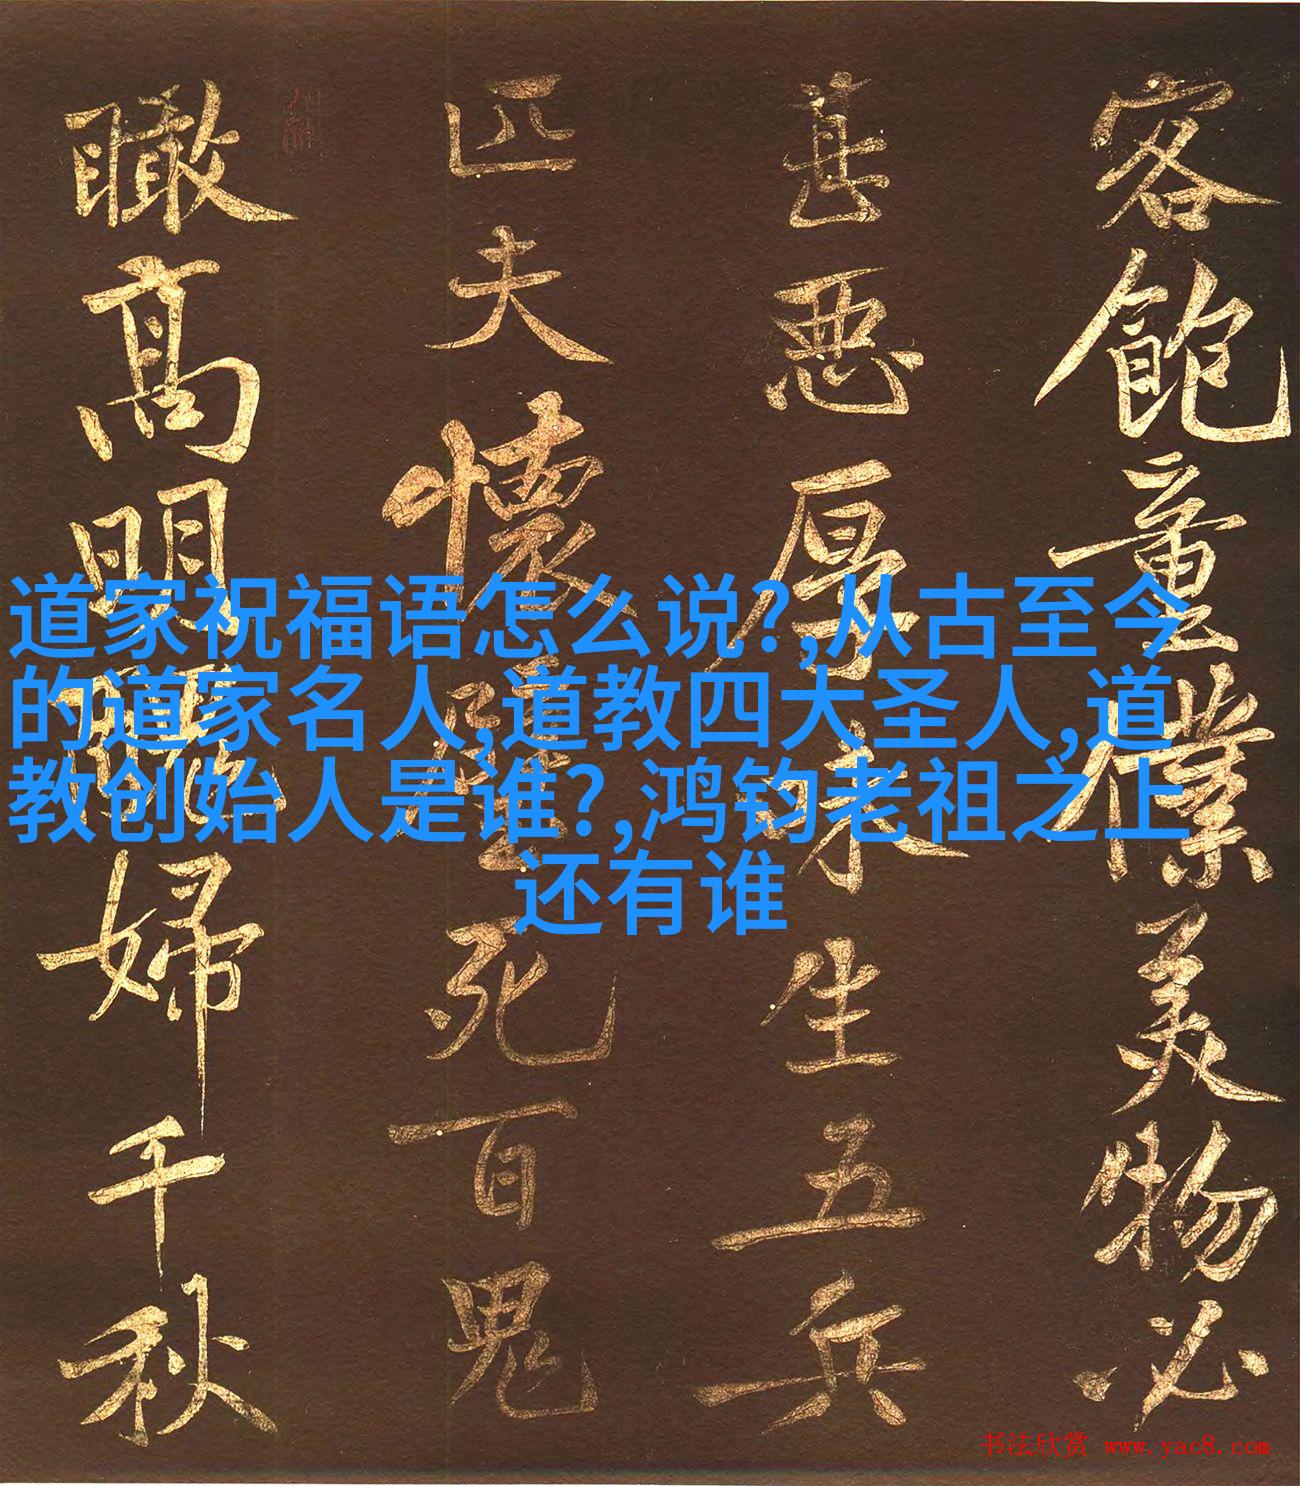 客飽童僕美物必
甚惡厚味生五兵
匹夫懷璧死百鬼
瞰高明醜婦千秋
道家祝福语怎么说?,从古至今
的道家名人,道教四大圣人,道
教创始人是谁?,鸿钧老祖之上
还有谁
书法欣赏 www.yac8.com